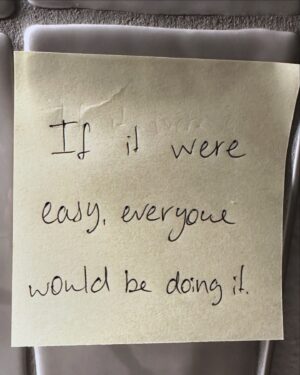 If it were
easy, everyone
would be doing it.